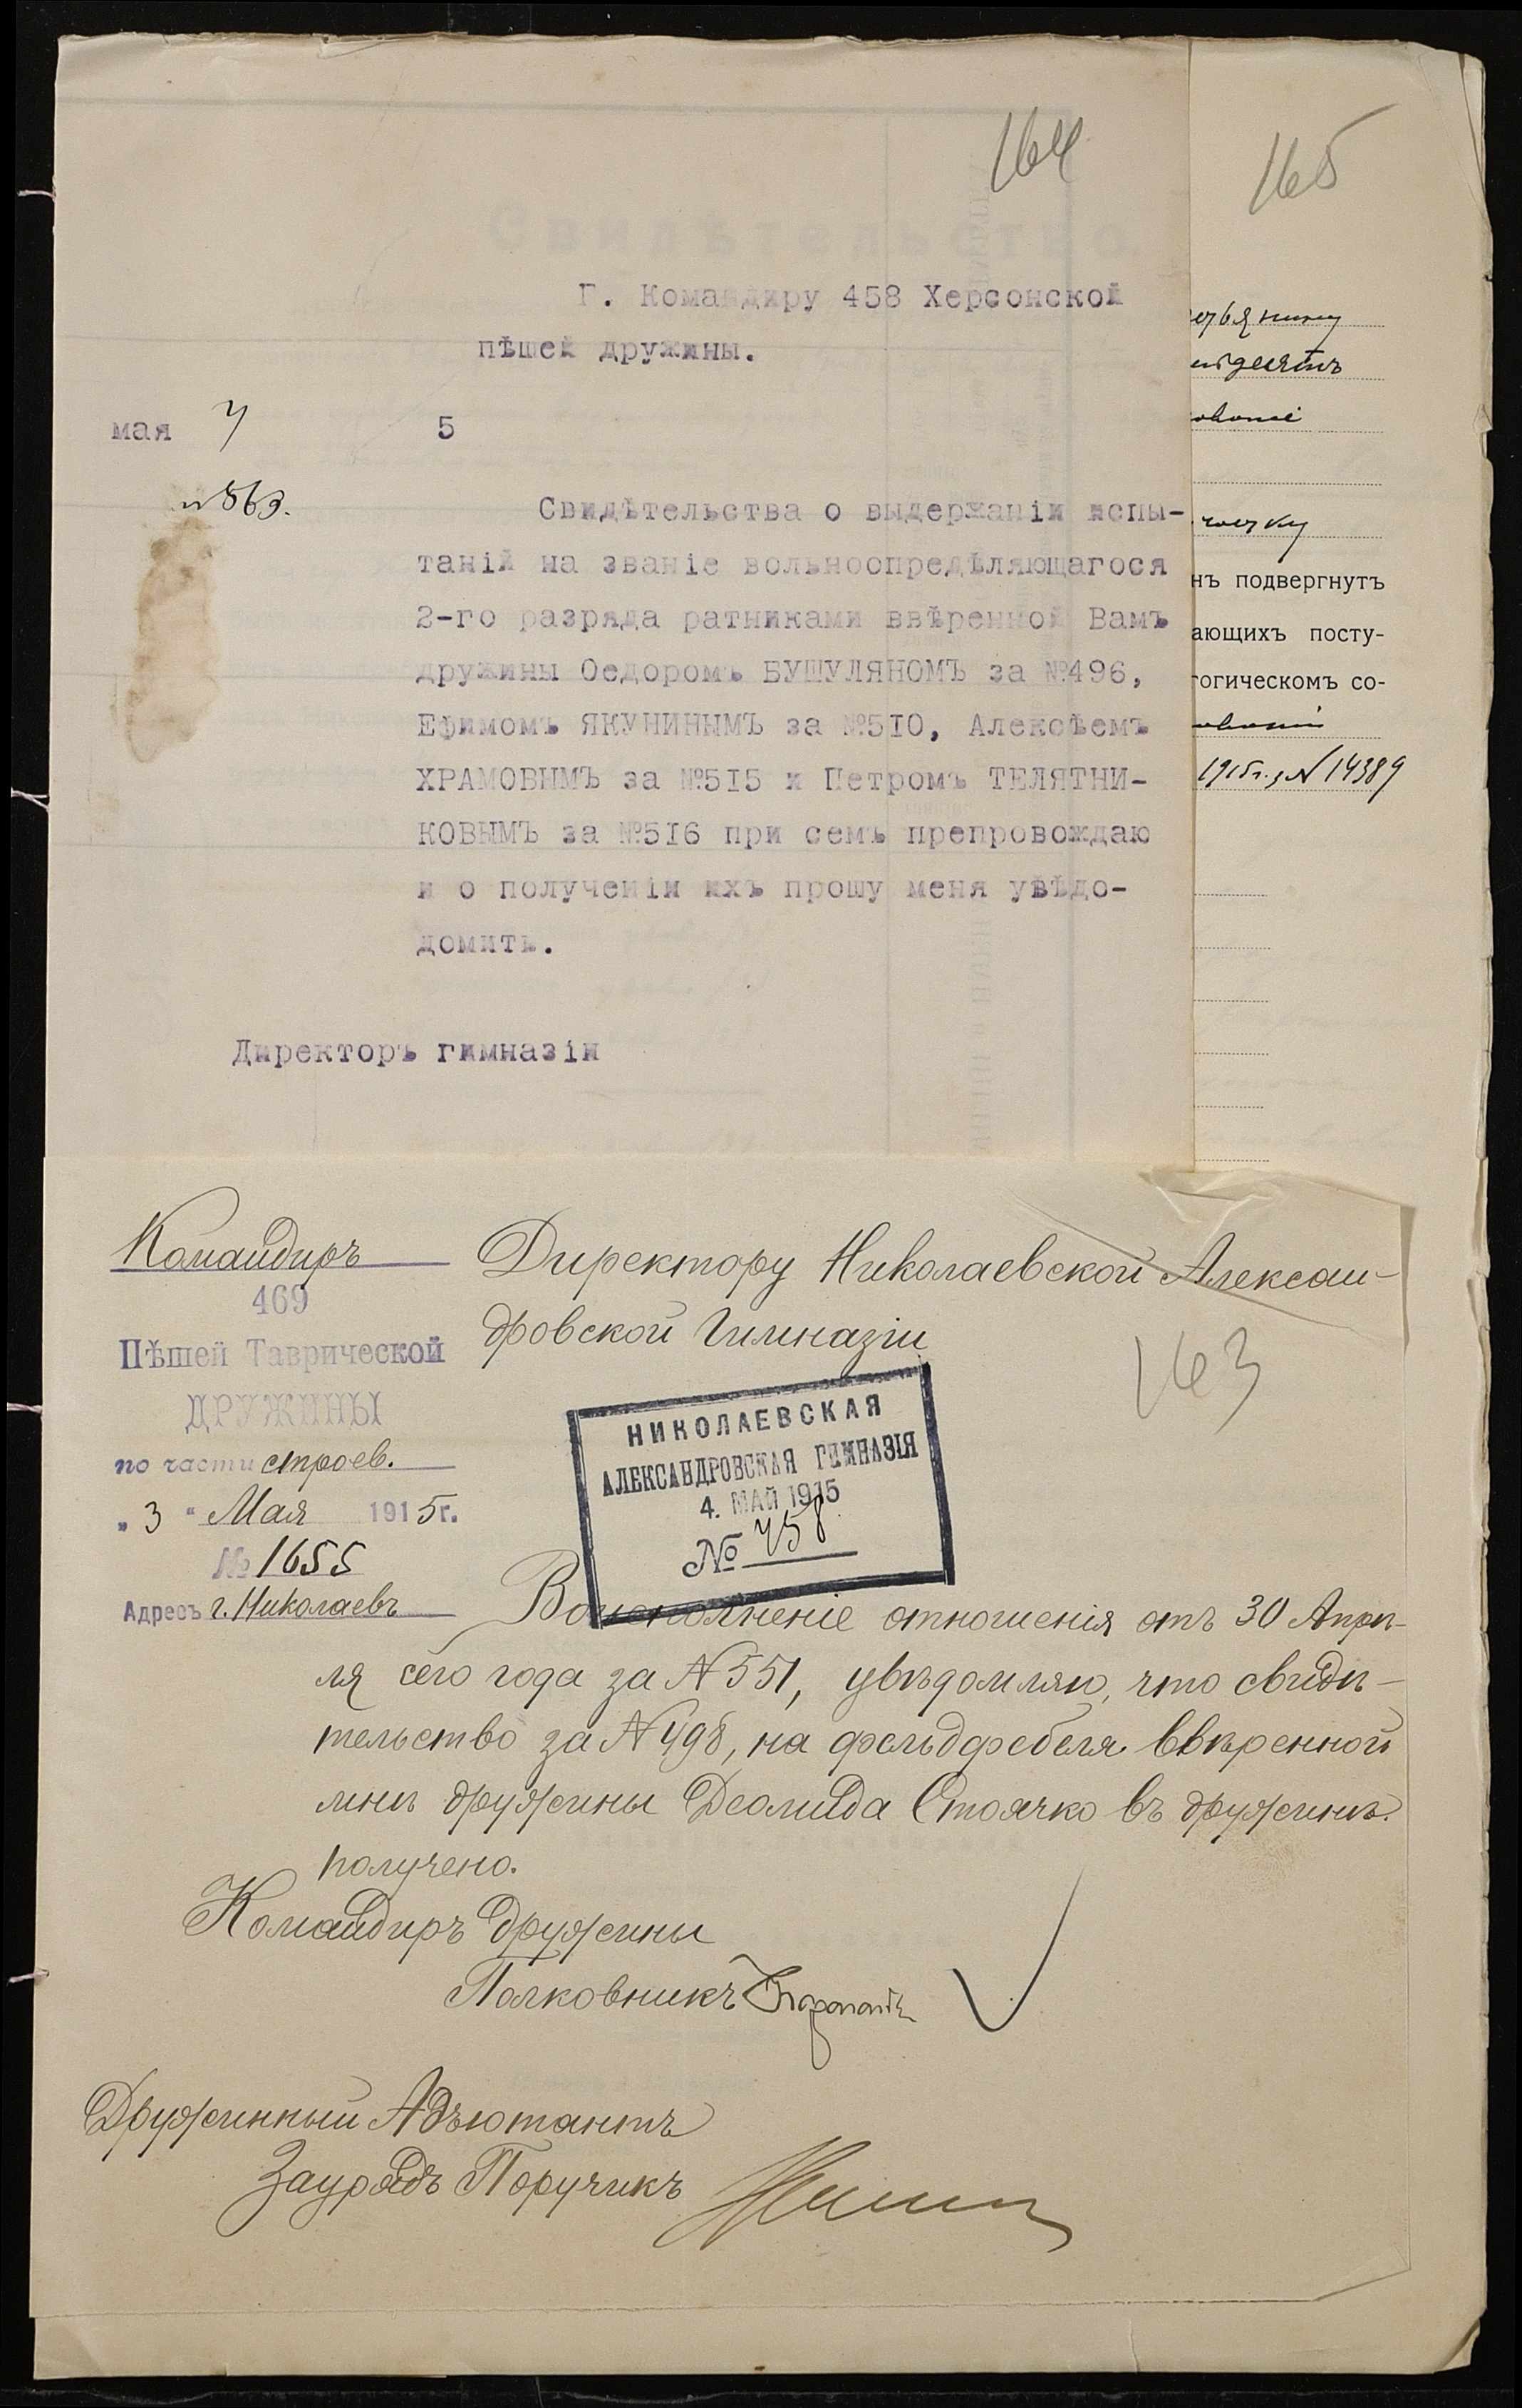 164
165
Г. Командиру 458 Херсонской
пѣшей дружины.
мая 7 5
№ 563.
Свидѣтельства о выдержаніи испы-
таній на званіе вольноопредѣляющагося
2-го разряда ратниками ввѣренной Вамъ
дружины Ѳедоромъ БУШУЛЯНОМЪ за №496,
Ефимомъ ЯКУНИНЫМЪ за №5I0, Алексѣемъ
ХРАМОВЫМЪ за №5I5 и Петромъ ТЕЛЯТНИ-
КОВЫМЪ за №5I6 при семъ препровождаю
и о полученіи ихъ прошу меня увѣдо-
домить.
Директоръ гимназіи
нъ подвергнутъ
ающихъ посту-
гогическомъ со-
1915 г. з N 14389
Командиръ
469
Пѣшей Таврической
ДРУЖИНЫ
по части строев.
„ 3 " Мая 1915 г.
№ 1655
Адресъ г. Николаевъ
Директору Николаевской Алексан-
дровской Гимназіи
163
НИКОЛАЕВСКАЯ
АЛЕКСАНДРОВСКАЯ ГИМНАЗІЯ
4. МАЙ 1915
№ 758
Во исполненіе отношенія отъ 30 Апрѣ-
ля сего года за N 551, увѣдомляю, что свидѣ-
тельство за N 498, на фельдфебеля ввѣренной
мнѣ дружины Деомида Стоячко въ дружинѣ
получено.
Командиръ дружины
Полковникъ
Дружинный Адъютантъ
Заурядъ Поручикъ